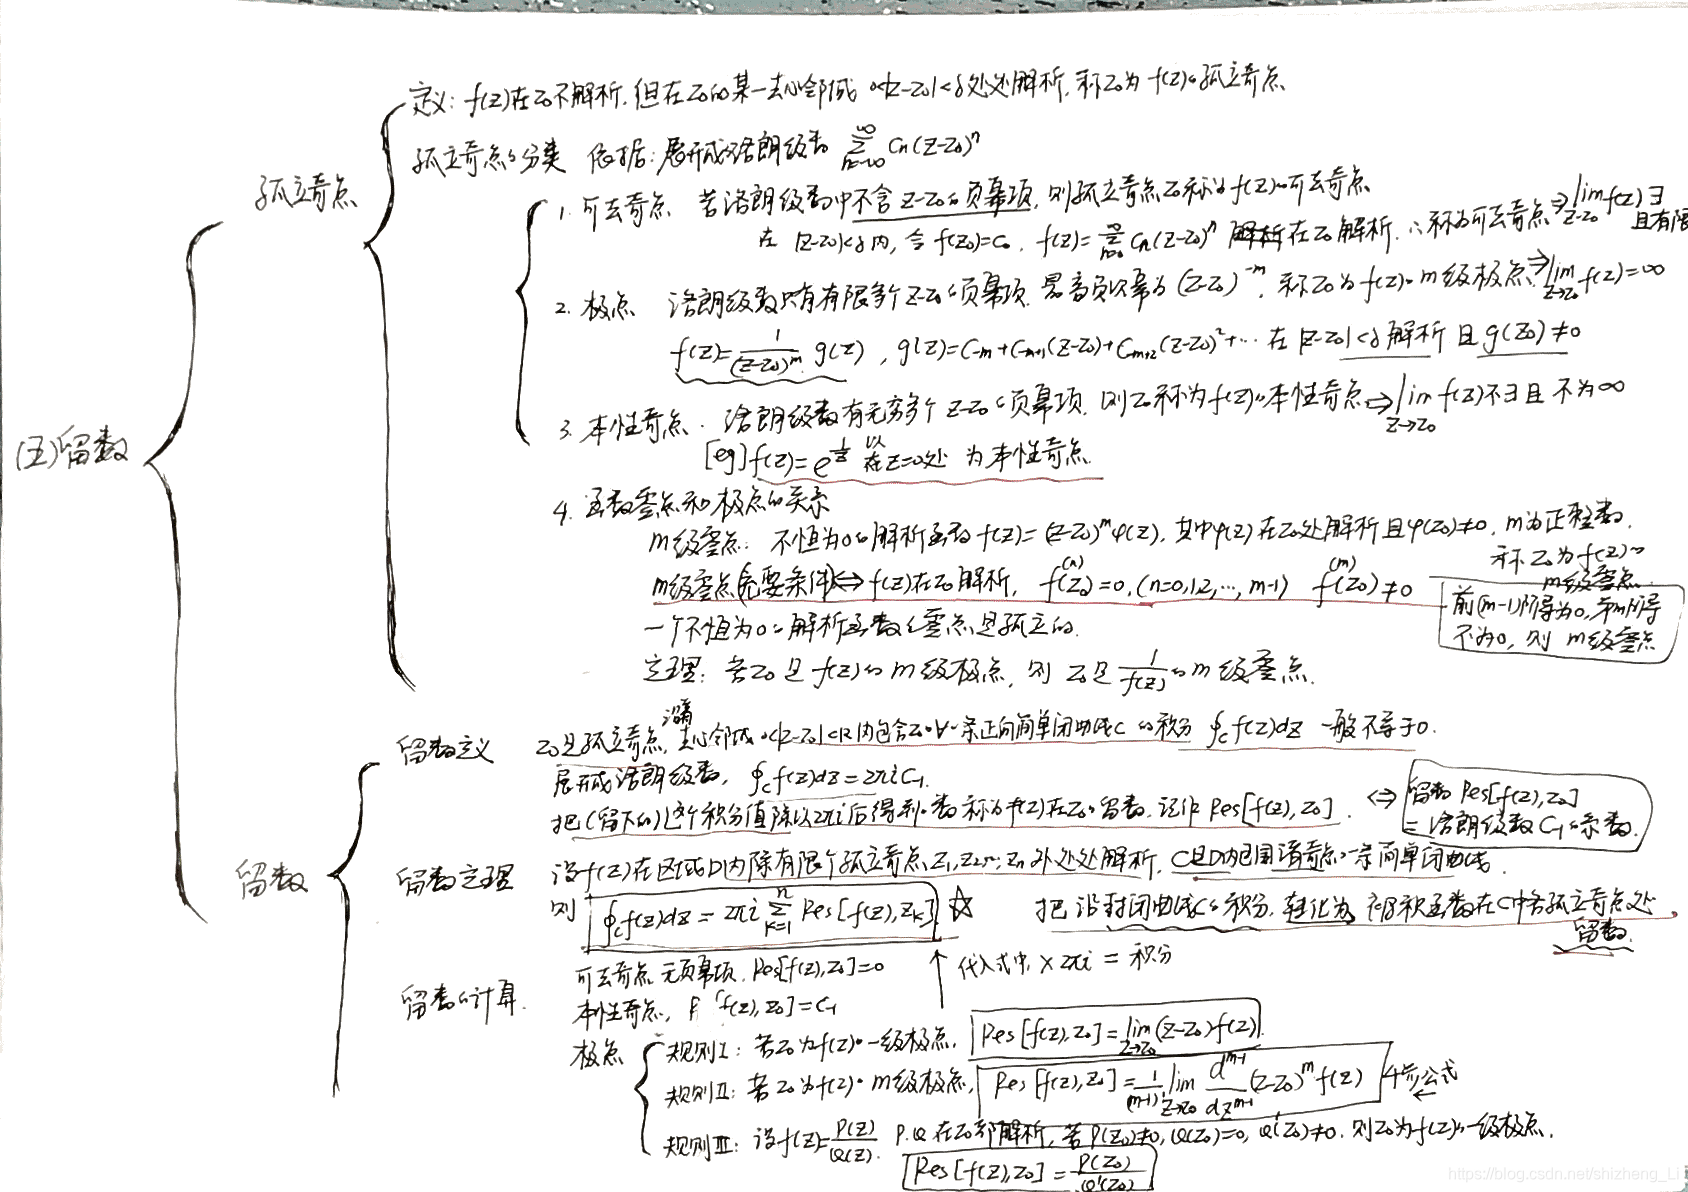 (五)留数
孤立奇点
定义: f(z)在z₀不解析,但在z₀的某一去心邻域 0<|z-z₀|<δ处处解析,称z₀为f(z)的孤立奇点
孤立奇点的分类 依据:展开成洛朗级数 ∑_{n=-∞}^{∞} Cn(z-z₀)ⁿ
1. 可去奇点 若洛朗级数中不含z-z₀的负幂项,则孤立奇点z₀称为f(z)的可去奇点
在 |z-z₀|<δ内,令f(z₀)=C₀. f(z)=∑_{n=0}^{∞} Cn(z-z₀)ⁿ 在z₀解析,∴称为可去奇点⇒lim_{z→z₀} f(z)∃
且有限
2. 极点 洛朗级数只有有限多个z-z₀的负幂项,最高负次幂为(z-z₀)^{-m},称z₀为f(z)的m级极点⇒lim_{z→z₀} f(z)=∞
f(z)=1/(z-z₀)^m g(z), g(z)=C_{-m}+C_{-m+1}(z-z₀)+C_{-m+2}(z-z₀)²+… 在|z-z₀|<δ解析且g(z₀)≠0
3. 本性奇点. 洛朗级数有无穷多个z-z₀的负幂项,则z₀称为f(z)的本性奇点⇒lim_{z→z₀} f(z)不∃且不为∞
[eg] f(z)=e^{1/z} 以在z=0处 为本性奇点
4. 函数零点和极点的关系
m级零点: 不恒为0的解析函数f(z)=(z-z₀)^m φ(z),其中φ(z)在z₀处解析且φ(z₀)≠0,m为正整数.
称z₀为f(z)的
m级零点
m级零点(充要条件)⇔f(z)在z₀解析, f^{(n)}(z₀)=0,(n=0,1,2,…,m-1) f^{(m)}(z₀)≠0
前(m-1)阶导为0,第m阶导
不为0,则 m级零点
一个不恒为0的解析函数的零点是孤立的.
定理: 若z₀是f(z)的m级极点,则z₀是1/f(z)的m级零点.
留数
留数定义 z₀是孤立奇点,沿着去心邻域 0<|z-z₀|<R内包含z₀的∀一条正向简单闭曲线C的积分∮_C f(z)dz一般不等于0.
展开成洛朗级数, ∮_C f(z)dz=2πiC₋₁
把(留下的)这个积分值除以2πi后得到的数称为f(z)在z₀的留数.记作Res[f(z),z₀].
⇔ 留数Res[f(z),z₀]
=洛朗级数C₋₁的系数.
留数定理 设f(z)在区域D内除有限个孤立奇点z₁,z₂…,zn外处处解析,C是D内包围诸奇点的一条简单闭曲线
则 ∮_C f(z)dz=2πi ∑_{k=1}^{n} Res[f(z),z_k] ☆ 把沿封闭曲线C的积分,转化为被积函数在C中各孤立奇点处
留数.
↑代入式中×2πi=积分
留数的计算.
可去奇点 无负幂项. Res[f(z),z₀]=0
本性奇点, [f(z),z₀]=C₋₁
极点
规则I: 若z₀为f(z)的一级极点, Res[f(z),z₀]=lim_{z→z₀}(z-z₀)f(z).
规则II: 若z₀为f(z)的m级极点, Res[f(z),z₀]=1/(m-1)! lim_{z→z₀} d^{m-1}/dz^{m-1} (z-z₀)^m f(z) 公式
规则III: 设f(z)=P(z)/Q(z). P.Q在z₀都解析,若P(z₀)≠0,Q(z₀)=0,Q'(z₀)≠0.则z₀为f(z)的一级极点.
Res[f(z),z₀]=P(z₀)/Q'(z₀)
https://blog.csdn.net/shizheng_Li